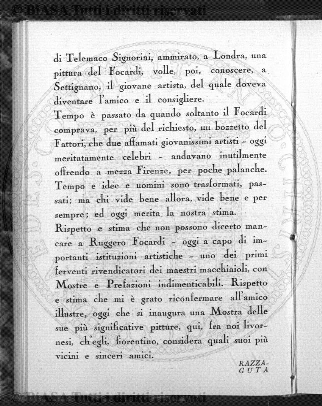 © BIASA Tutti i diritti riservati
di Telemaco Signorini, ammirato, a Londra, una
pittura del Focardi, volle, poi, conoscere, a
Settignano, il giovane artista, del quale doveva
diventare l'amico e il consigliere.
Tempo è passato da quando soltanto il Focardi
comprava, per più del richiesto, un bozzetto del
Fattori, che due affamati giovanissimi artisti - oggi
meritatamente celebri - andavano inutilmente
offrendo a mezza Firenze, per poche palanche.
Tempo e idee e uomini sono trasformati, pas-
sati; ma chi vide bene allora, vide bene e per
sempre; ed oggi merita la nostra stima.
Rispetto e stima che non possono dicerto man-
care a Ruggero Focardi - oggi a capo di im-
portanti istituzioni artistiche - uno dei primi
ferventi rivendicatori dei maestri macchiaioli, con
Mostre e Prefazioni indimenticabili. Rispetto
e stima che mi è grato riconfermare all'amico
illustre, oggi che si inaugura una Mostra delle
sue più significative pitture, qui, fra noi livor-
nesi, ch'egli, fiorentino, considera quali suoi più
vicini e sinceri amici.
RAZZA-
GUTA
© BIASA Tutti i diritti riservati